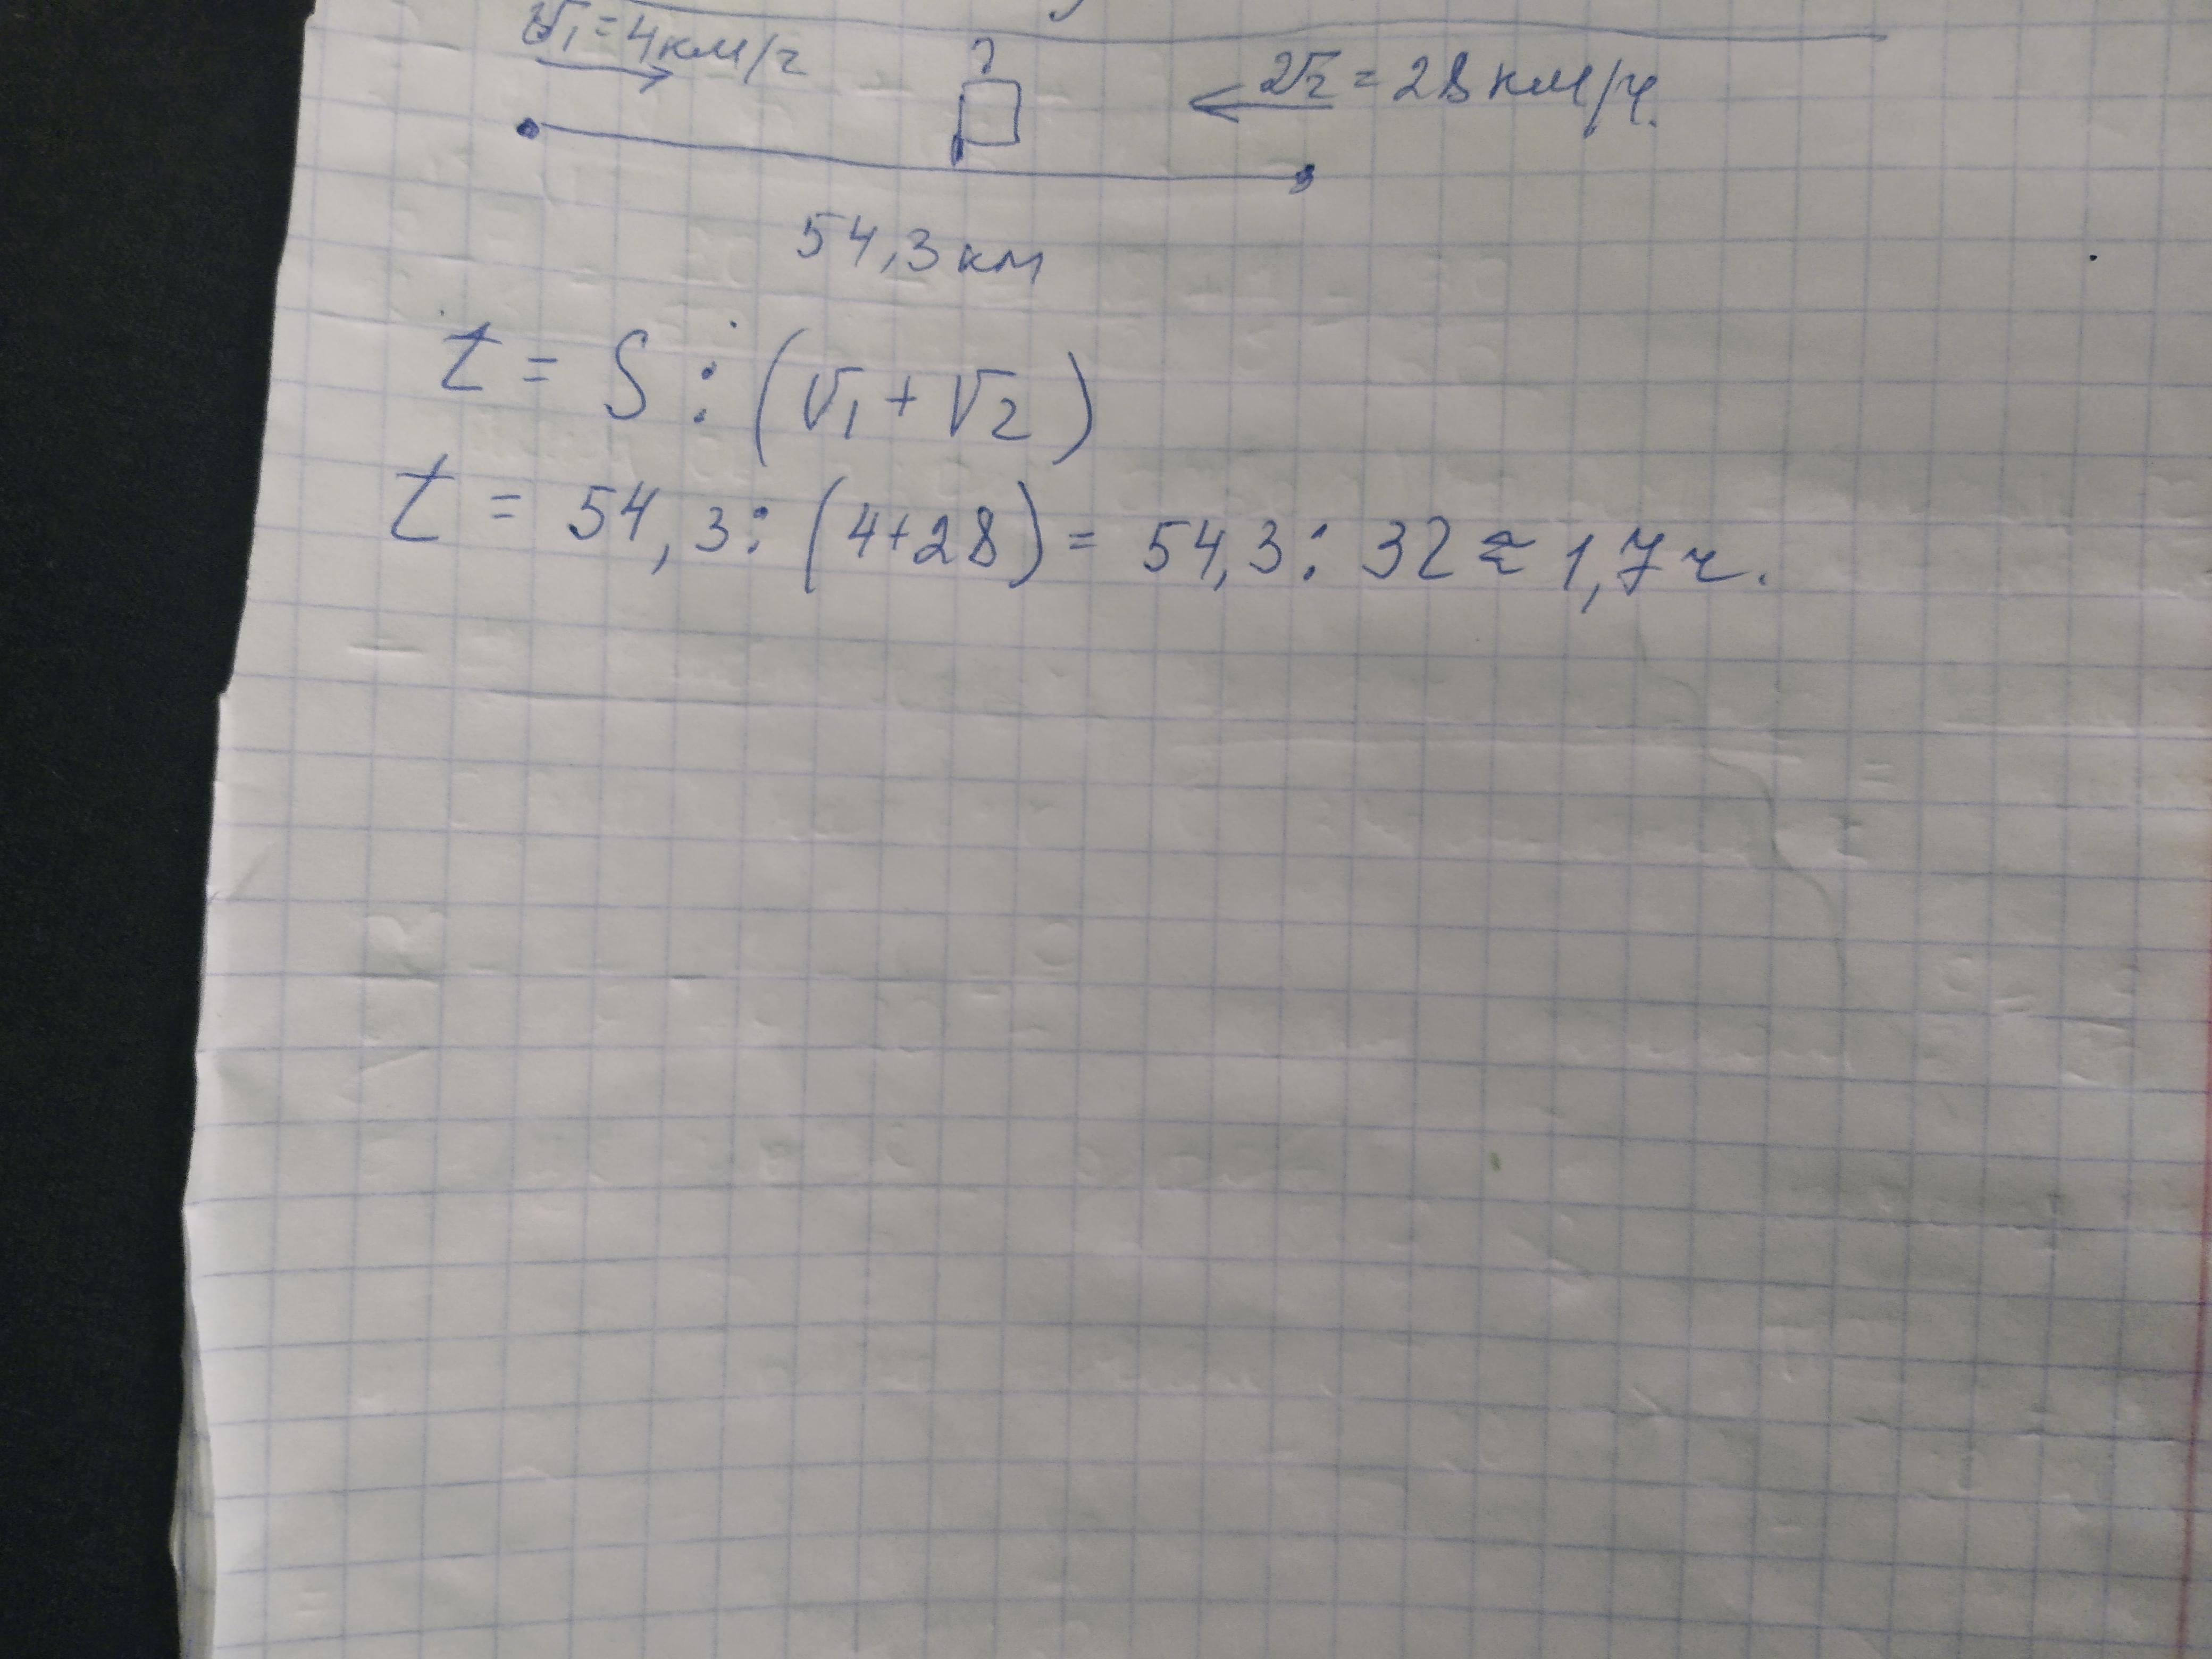 V₁ = 4 км/ч
?
V₂ = 28 км/ч.
54,3 км
t = S : (V₁ + V₂)
t = 54,3 : (4+28) = 54,3 : 32 ≈ 1,7 ч.